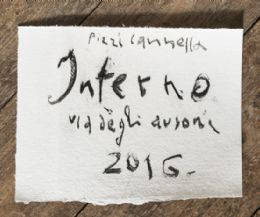 Pizzi Cannella
Interno
via degli ausoni
2016.